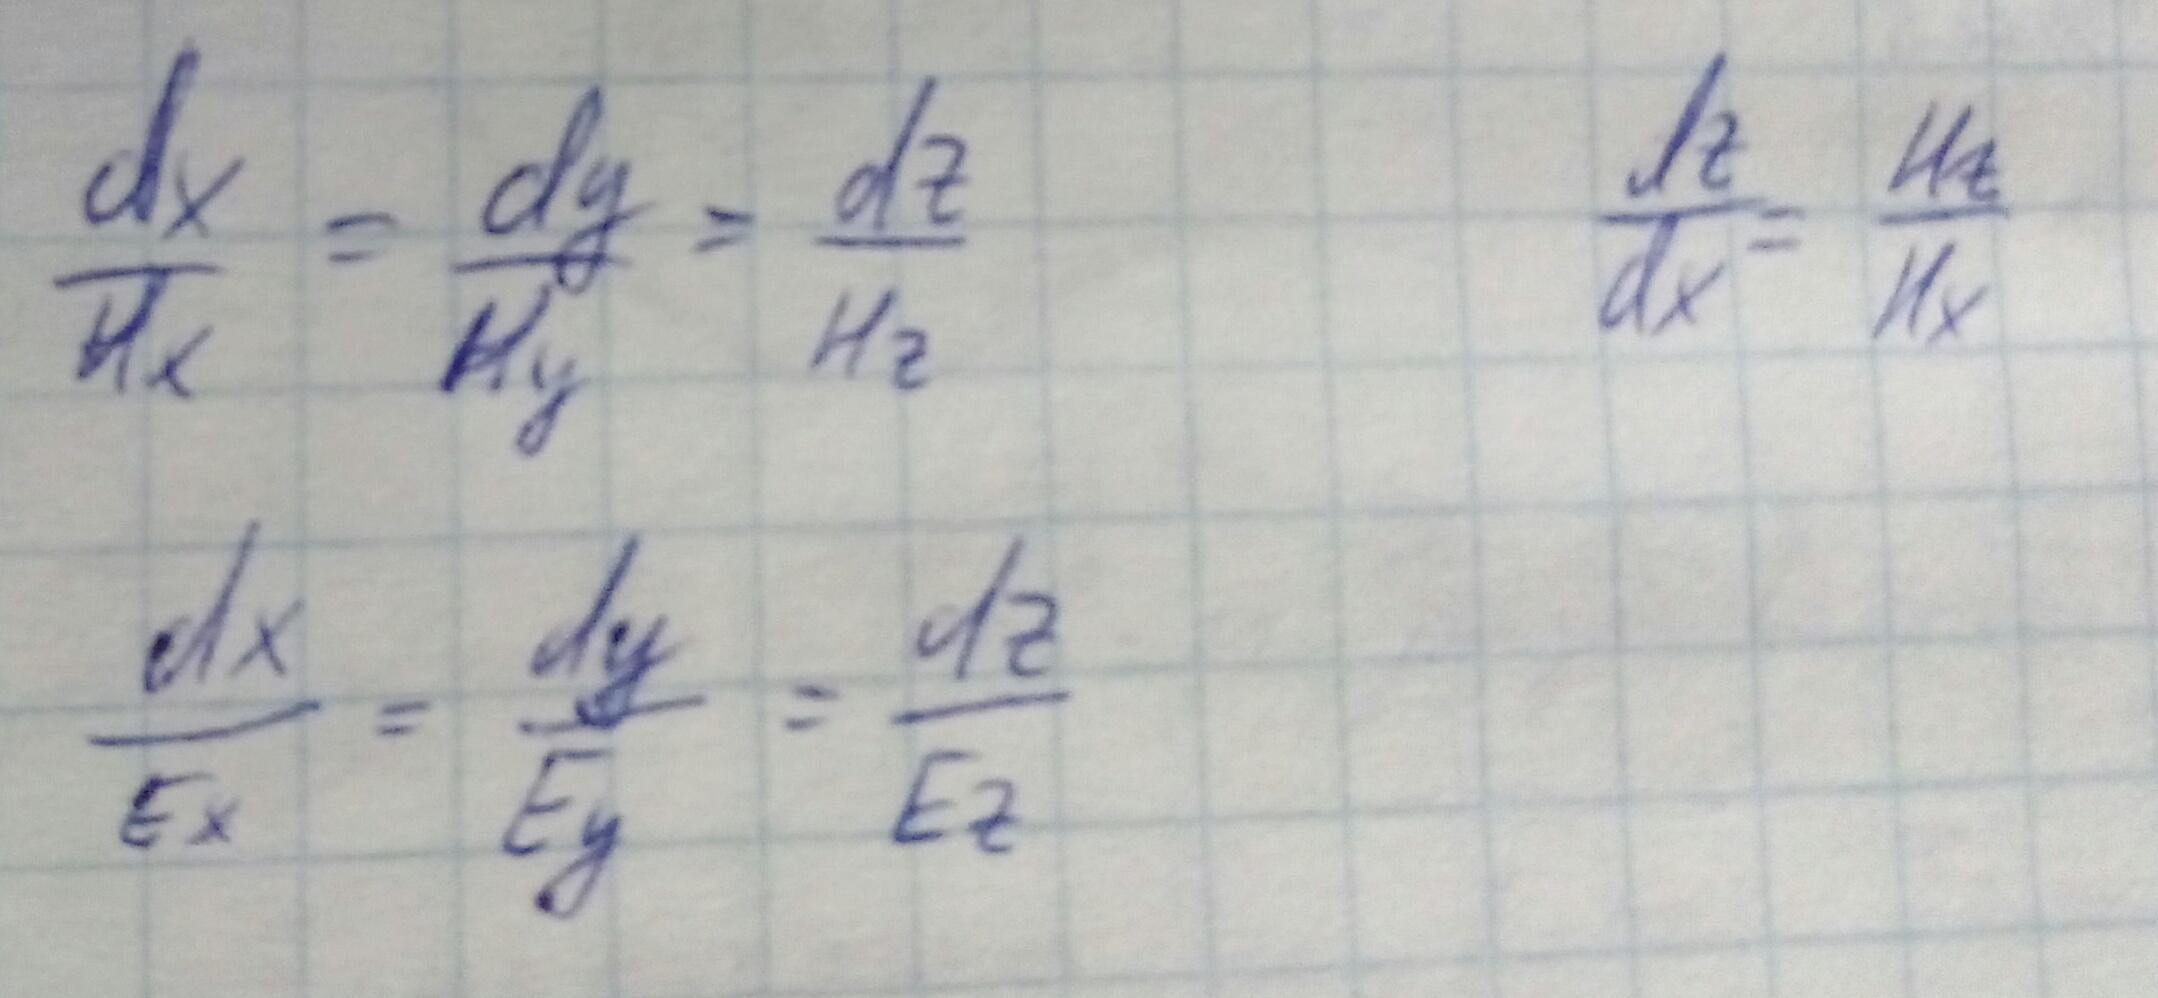 dx/Hx = dy/Hy = dz/Hz    dz/dx = Hz/Hx
dx/Ex = dy/Ey = dz/Ez